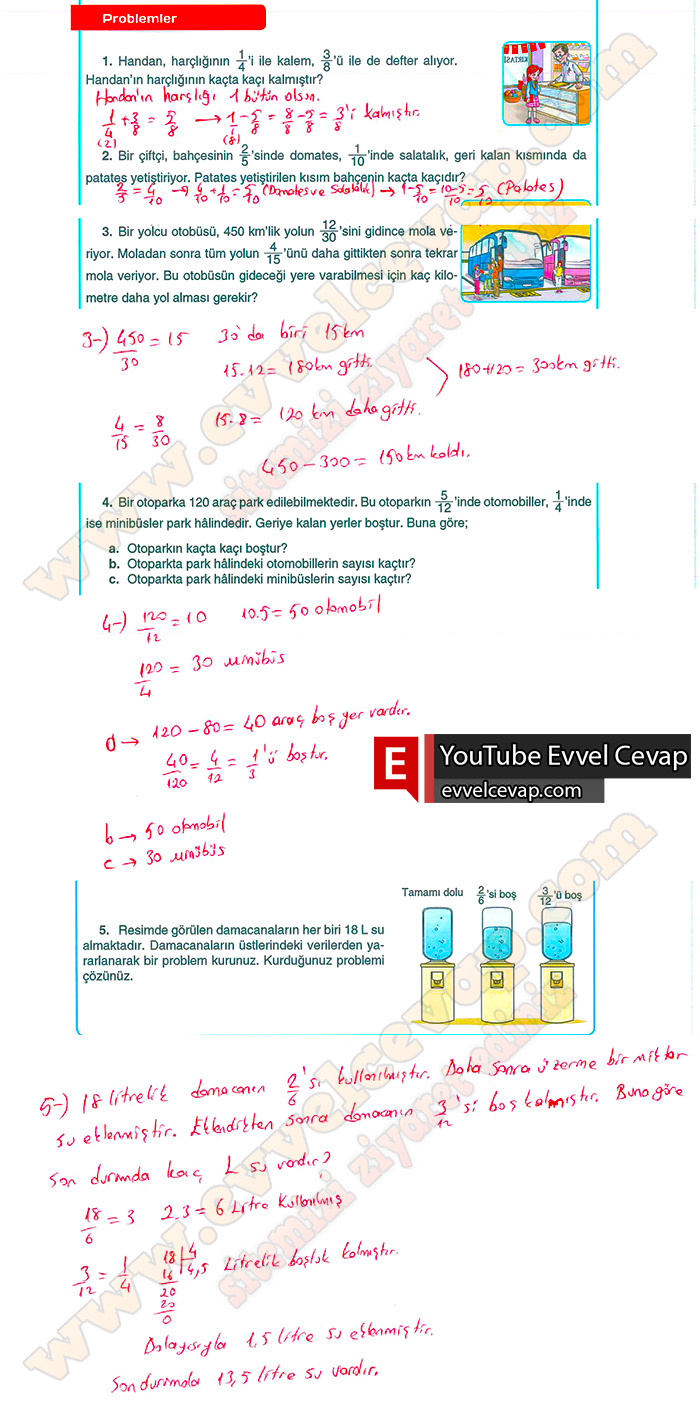 Problemler
1. Handan, harçlığının 1/4'i ile kalem, 3/8'ü ile de defter alıyor.
Handan'ın harçlığının kaçta kaçı kalmıştır?
KIRTASİ
Handan'ın harçlığı 1 bütün olsun.
1/4 + 3/8 = 5/8 → 1/1 - 5/8 = 8/8 - 5/8 = 3/8'i kalmıştır.
(2) (8)
2. Bir çiftçi, bahçesinin 2/5'sinde domates, 1/10'inde salatalık, geri kalan kısmında da
patates yetiştiriyor. Patates yetiştirilen kısım bahçenin kaçta kaçıdır?
2/5 = 4/10 → 4/10 + 1/10 = 5/10 (Domates ve Salatalık) → 1 - 5/10 = 10-5/10 = 5/10 (Patates)
3. Bir yolcu otobüsü, 450 km'lik yolun 12/30'sini gidince mola ve-
riyor. Moladan sonra tüm yolun 4/15'ünü daha gittikten sonra tekrar
mola veriyor. Bu otobüsün gideceği yere varabilmesi için kaç kilo-
metre daha yol alması gerekir?
3-) 450/30 = 15 30'da biri 15 km
15.12 = 180 km gitti.
180+120 = 300 km gitti.
4/15 = 8/30 15.8 = 120 km daha gitti.
450 - 300 = 150 km kaldı.
4. Bir otoparka 120 araç park edilebilmektedir. Bu otoparkın 5/12'inde otomobiller, 1/4'inde
ise minibüsler park hâlindedir. Geriye kalan yerler boştur. Buna göre;
a. Otoparkın kaçta kaçı boştur?
b. Otoparkta park hâlindeki otomobillerin sayısı kaçtır?
c. Otoparkta park hâlindeki minibüslerin sayısı kaçtır?
4-) 120/12 = 10 10.5 = 50 otomobil
120/4 = 30 minibüs
a → 120 - 80 = 40 araç boş yer vardır.
40/120 = 4/12 = 1/3'ü boştur.
E YouTube Evvel Cevap
evvelcevap.com
b → 50 otomobil
c → 30 minibüs
Tamamı dolu 2/6'si boş 3/12'ü boş
5. Resimde görülen damacanaların her biri 18 L su
almaktadır. Damacanaların üstlerindeki verilerden ya-
rarlanarak bir problem kurunuz. Kurduğunuz problemi
çözünüz.
5-) 18 litrelik damacanın 2/6'sı kullanılmıştır. Daha sonra üzerine bir miktar
su eklenmiştir. Eklendikten sonra damacanın 3/12'si boş kalmıştır. Buna göre
son durumda kaç L su vardır?
18/6 = 3 2.3 = 6 Litre kullanılmış
3/12 = 1/4 18 | 4 4,5 Litrelik boşluk kalmıştır.
16
20
20
0
Dolayısıyla 1,5 litre su eklenmiştir.
Son durumda 13,5 litre su vardır.
www.evvelcevap.com
sitemizi ziyaret ediniz
www.evvelcevap.com
sitemizi ziyaret ediniz